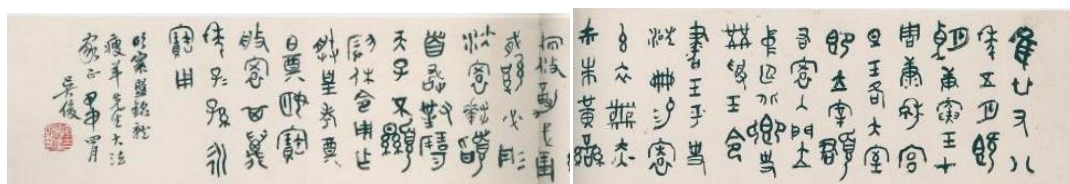 隹廿又八
年五月既
望庚寅王才
周康穆宮
旦王各大室
即立宰頵
右寰入門立
中廷北鄉史
黹受王令
書王乎史
淢冊易寰
玄衣黹屯
赤巿朱黃鑾
旂攸勒戈琱
戟必彤
沙寰拜稽
首敢對揚
天子不顯
叚休令用乍
朕皇考奠
白奠姬寶
般寰其萬
年子孫永
寶用
寰盤銘就
瘦羊先生大法
家正 甲申
吳俊